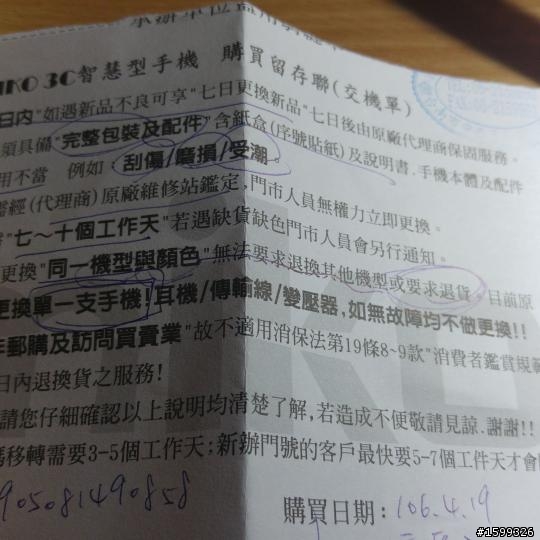 IKO 3C智慧型手機 購買留存聯(交機單)
日內"如遇新品不良可享"七日更換新品"七日後由原廠代理商保固服務。
須具備"完整包裝及配件"含紙盒(序號貼紙)及說明書.手機本體及配件
用不當 例如:刮傷/磨損/受潮.
需經(代理商)原廠維修站鑑定,門市人員無權力立即更換。
"七~十個工作天"若遇缺貨缺色門市人員會另行通知。
更換"同一機型與顏色"無法要求退換其他機型或要求退貨。目前原
更換單一支手機!耳機/傳輸線/變壓器,如無故障均不做更換!!
非郵購及訪問買賣業"故不適用消保法第19條8~9款"消費者鑑賞規範
日內退換貨之服務!
請您仔細確認以上說明均清楚了解,若造成不便敬請見諒.謝謝!!
碼移轉需要3-5個工作天;新辦門號的客戶最快要5-7個工作天才會
905081490858
購買日期:106.4.19
#1599326